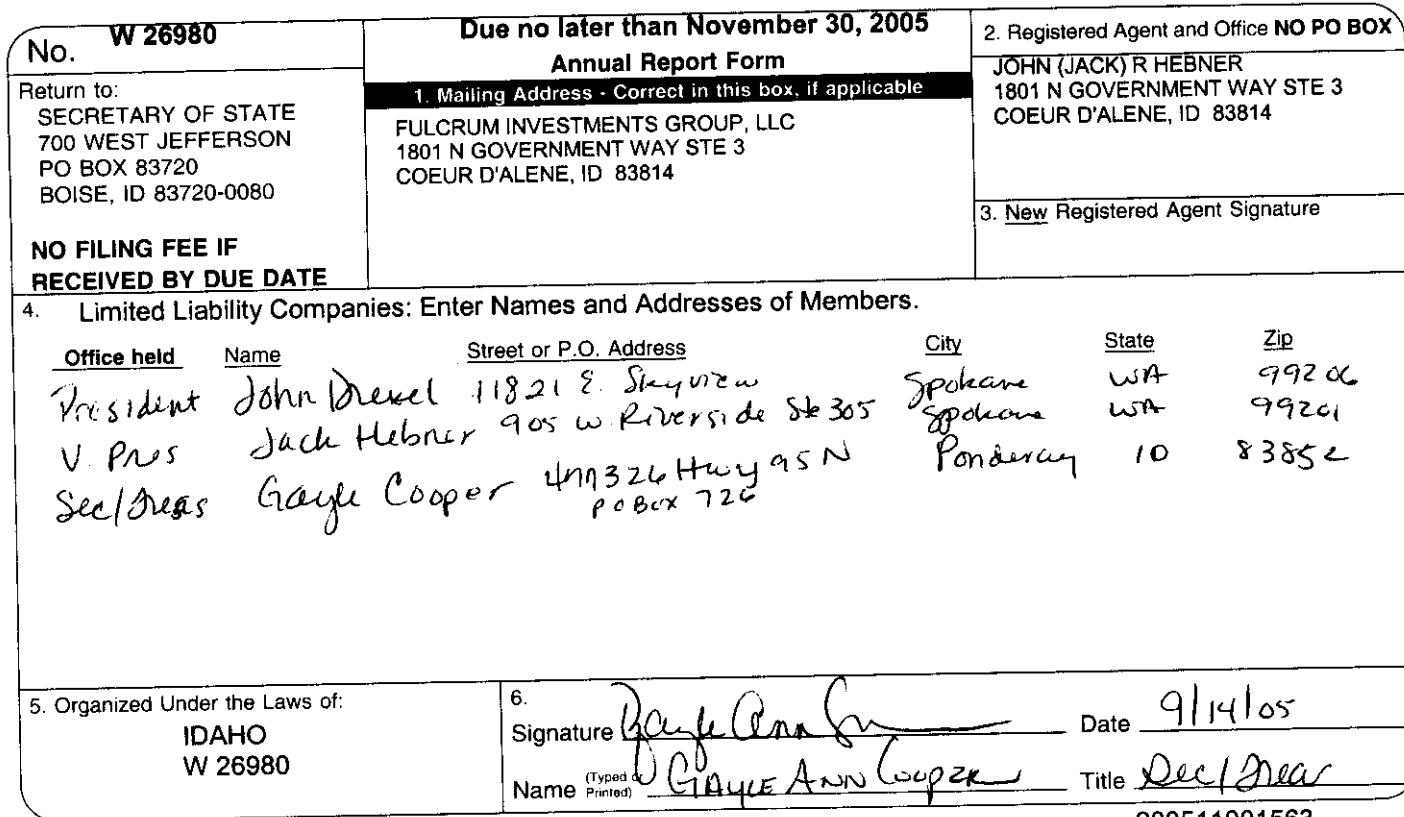 No. W 26980
Return to:
SECRETARY OF STATE
700 WEST JEFFERSON
PO BOX 83720
BOISE, ID 83720-0080
NO FILING FEE IF
RECEIVED BY DUE DATE
Due no later than November 30, 2005
Annual Report Form
1. Mailing Address - Correct in this box, if applicable
FULCRUM INVESTMENTS GROUP, LLC
1801 N GOVERNMENT WAY STE 3
COEUR D'ALENE, ID 83814
2. Registered Agent and Office NO PO BOX
JOHN (JACK) R HEBNER
1801 N GOVERNMENT WAY STE 3
COEUR D'ALENE, ID 83814
3. New Registered Agent Signature
4. Limited Liability Companies: Enter Names and Addresses of Members.
Office held Name Street or P.O. Address City State Zip
President John Drexel 11821 E. Skyview Spokane WA 99206
V. Pres Jack Hebner 905 W. Riverside Ste 305 Spokane WA 99201
Sec/Treas Gayle Cooper Hwy 95 N Ponderay ID 83852
PO Box 726
5. Organized Under the Laws of:
IDAHO
W 26980
6.
Signature Gayle Ann Date 9/14/05
Name (Typed or Printed) GAYLE ANN COOPER Title Sec/Treas